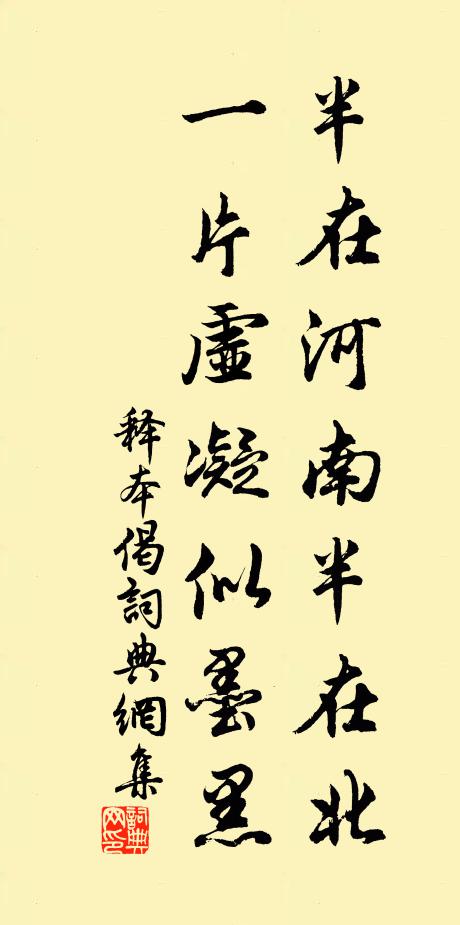 半在河南半在北
一片虛凝似墨黑
释本偈詞典網集
詞典网印